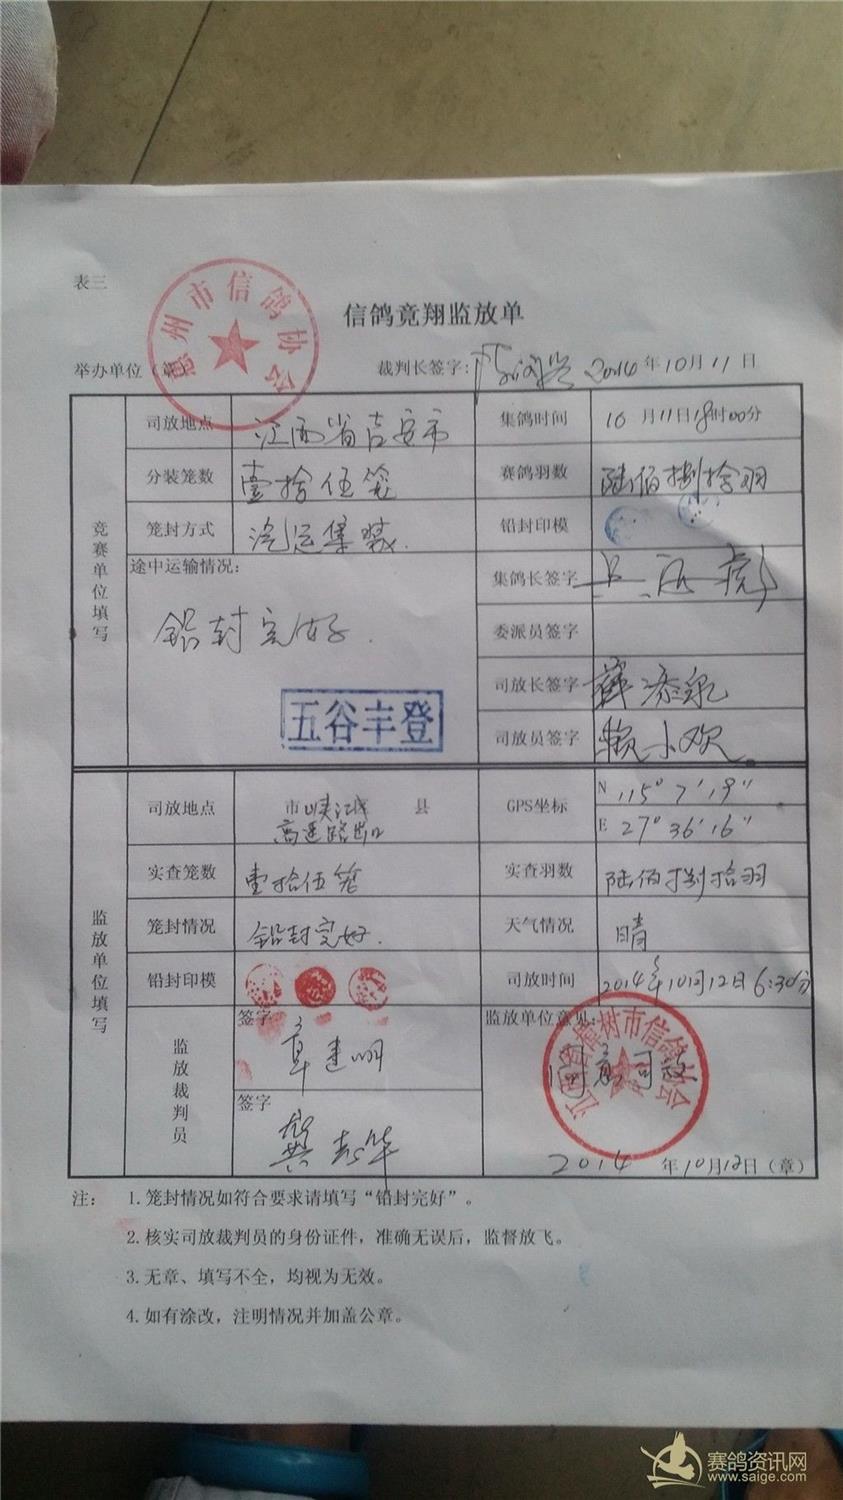 表三
惠州市信鸽协会
信鸽竟翔监放单
举办单位（章）
裁判长签字:
2014年10月11日
竞赛单位填写
司放地点 江西省吉安市 集鸽时间 10月11日18时00分
分装笼数 壹拾伍笼 赛鸽羽数 陆佰捌拾羽
笼封方式 汽运集装. 铅封印模
途中运输情况: 集鸽长签字
铅封完好.
委派员签字
五谷丰登
司放长签字 薛添泉
司放员签字 赖小欢
监放单位填写
司放地点 市峡江县 GPS坐标 N 115° 7′ 19″
高速路出口 E 27° 36′ 16″
实查笼数 壹拾伍笼 实查羽数 陆佰捌拾羽
笼封情况 铅封完好. 天气情况 晴
铅封印模 司放时间 2014年10月12日6:30分
监放裁判员
签字 章建明
签字 龚志华
监放单位意见:
同意司放
江西省樟树市信鸽协会
2014年10月12日（章）
注: 1.笼封情况如符合要求请填写“铅封完好”。
2.核实司放裁判员的身份证件，准确无误后，监督放飞。
3.无章、填写不全，均视为无效。
4.如有涂改，注明情况并加盖公章。
赛鸽资讯网
www.saige.com